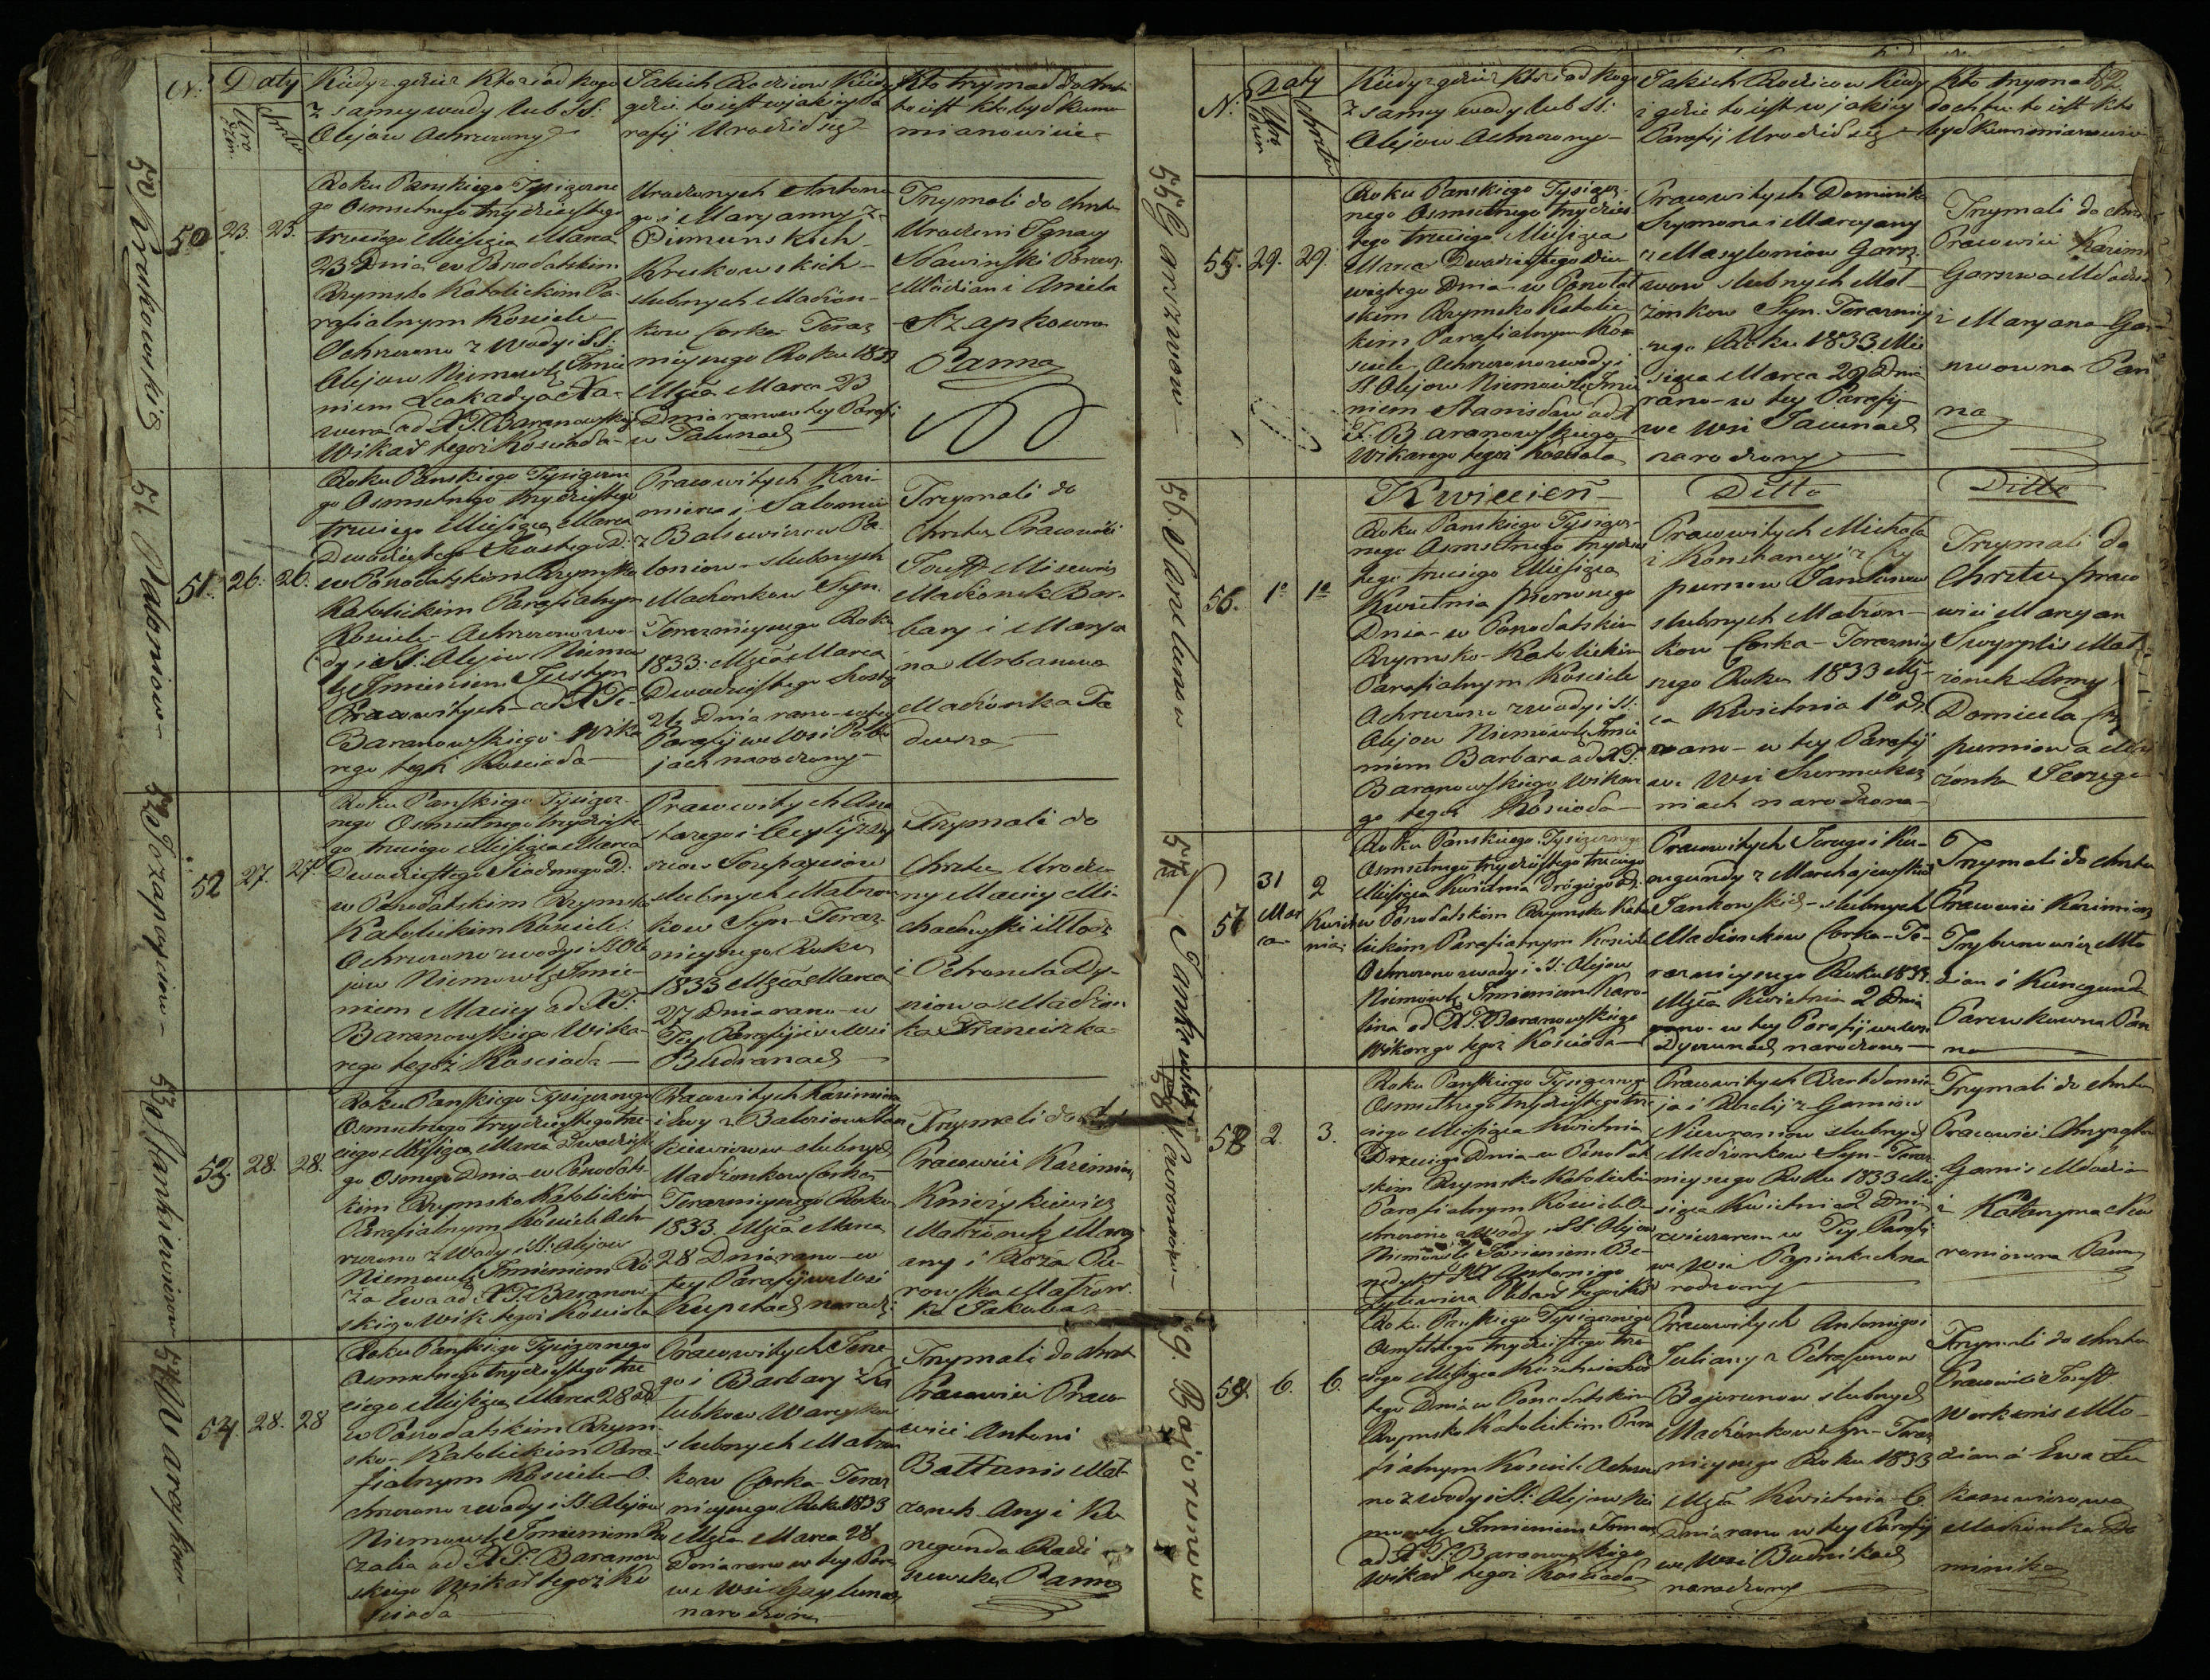 N.
Daty
Uro
dzin.
Chrztu
Kiedy z gdzie Kto i od kogo
z samey wody lub SS.
Olejów Ochrzczony
Jakich Rodziców Kiedy
gdzie to iest w jakiey Pa
rafij Urodził się
Kto trzymał do chrztu
to iest kto był kumem
mianowicie
50 Krukowskie
50
23.
23.
Roku Panskiego Tysiączne
go Osmsetnego trzydziestego
trzeciego Miesiąca Marca
23 Dnia w Ponodalskim
Rzymsko Katolickim Pa-
rafialnym Kosciele
Ochrzczono z Wody i SS.
Olejow Niemowlę Imie
niem Leokadya Xa-
wera od X. T. Baranowskiego
Wikar tegoż Kosciała
Urodzonych Anton
go i Maryanny z
Pimunskich
Krukowskich
slubnych Małżon-
kow Corka Teraz
nieyszego Roku 1833
Mźca Marca 23
Dnia rano w tey Parafi
w Talunach
Trzymali do chrztu
Urodzeni Ignacy
Sławinski Kawal.
Młodzian i Aniela
Szapkowna
Panna
51 Pałoniow
51.
26.
26.
Roku Panskiego Tysiączne
go Osmsetnego trzydziestego
trzeciego Miesiąca Marca
Dwudziestego Szostego D.
w Ponodalskim Rzymsko
Katolickim Parafialnym
Kosciele Ochrzczono z wo-
dy i SS. Olejow Niemow
lę Imieniem Justyn
Pracowitych od X. T.
Baranowskiego Wika
rego tegoż Kosciała
Pracowitych Kazi-
mierza i Salomei
z Balcewiczow Pa-
loniow slubnych
Małżonkow Syn
Teraznieyszego Roku
1833 Mźca Marca
Dwudziestego Szosteg
26 Dnia rano w tey
Parafij we Wsi Pału
jach narodzony
Trzymali do
Chrztu Pracowici
Jozeff Misiewicz
Małżonek Bar-
bary i Marya
na Urbanowa
Małżonka Ta
deusza
52 Jozapayciow
52
27.
27.
Roku Panskiego Tysiącz-
nego Osmsetnego trzydzieste
go trzeciego Miesiąca Marca
Dwudziestego Siodmego D.
w Ponodalskim Rzymsko
Katolickim Kosciele
Ochrzczono z wody i SS Ole
jow Niemowlę Imie-
niem Maciey od X. T.
Baranowskiego Wika-
rego tegoż Kosciała
Pracowitych Ana
stazego i Cecylij z
Jozapayciow
slubnych Małżon-
kow Syn Teraz-
nieyszego Roku
1833 Mźca Marca
27 Dnia rano w
Tey Parafij we Wsi
Budranach
Trzymali do
Chrztu Urodzo
ny Maciey Mi-
chałowski Młodz
i Petronela Dy-
niowa Małżon
ka Franciszka
53 Stankiewiczow
53.
28.
28.
Roku Panskiego Tysiącznego
Osmsetnego trzydziestego trze-
ciego Miesiąca Marca Dwudzieste
go Osmego Dnia w Ponodals-
kim Rzymsko Katolickim
Parafialnym Kosciele Och-
rzczono z Wody i SS. Olejow
Niemowlę Imieniem Ró
ża Ewa od X. T. Baranow-
skiego Wik. tegoż Kosciała
Pracowitych Kazimierza
i Ewy z Balciow Stan
kiewiczow slubnych
Małżonkow Corka
Teraznieyszego Roku
1833 Mźca Marca
28 Dnia rano w
tey Parafij we Wsi
Kupelach narodz.
Trzymali do chrztu
Pracowici Kazimierz
Knieżykiewicz
Małżonek Mary
any i Roża Pie-
rowska Małżon-
ka Jakuba
54 Waryskow
54.
28.
28
Roku Panskiego Tysiącznego
Osmsetnego trzydziestego trze
ciego Miesiąca Marca 28 D
w Ponodalskim Rzym-
sko Katolickim Para-
fialnym Kosciele O-
chrzczono z wody i SS. Olejow
Niemowlę Imieniem Ro
zalia od X. T. Baranow
skiego Wikar tegoż Ko
sciała
Pracowitych Jerze
go i Barbary z Ja
lubkow Waryskow
slubnych Małżon
kow Corka Teraz
nieyszego Roku 1833
Mźca Marca 28
Dnia rano w tey Par
we Wsi Gaylunach
narodzona
Trzymali do chrzt
Pracowici Praco-
wici Antoni
Bałtunis Mał-
żonek Any i Ku
negunda Radi
szewska Panna
N.
Daty
Uro
dzin
Chrztu
Kiedy z gdzie Kto i od kogo
z samey wody lub SS.
Olejow Ochrzczony
Jakich Rodzicow Kiedy
i gdzie to iest w jakiey
Parafij Urodził się
Kto trzymał
do chrztu to iest kto
był kumem mianowicie
82.
55 Garszwow
55.
29.
29.
Roku Panskiego Tysiącz-
nego Osmsetnego trzydzies
tego trzeciego Miesiąca
Marca Dwudziestego Dzie
wiątego Dnia w Ponodal
skim Rzymsko Katolic-
kim Parafialnym Kos-
ciele Ochrzczono z wody i
SS. Olejow Niemowlę Imie
niem Stanisław od X
T. Baranowskiego
Wikarego tegoż Kosciała
Pracowitych Dominika
Szymona i Maryany
z Masyloniow Garsz-
wow slubnych Mał-
żonkow Syn Teraznieysz
ego Roku 1833 Mie
siąca Marca 29 Dnia
rano w tey Parafij
we Wsi Jacunach
narodzony
Trzymali do chrz
Pracowici Kazimi
Garszwa Młodzia
i Maryana Gar-
szwowna Pan
na
Kwiecień
Ditto
Ditto
56 Janelunow
56.
1o
1o
Roku Panskiego Tysiącz-
nego Osmsetnego trzydzies
tego trzeciego Miesiąca
Kwietnia pierwszego
Dnia w Ponodalskim
Rzymsko Katolickim
Parafialnym Kosciele
Ochrzczono z wody i SS.
Olejow Niemowlę Imie
niem Barbara od X. T.
Baranowskiego Wikare
go tegoż Kosciała
Pracowitych Michała
i Konstancyi z Czy
purnow Janelunow
slubnych Małżon-
kow Corka Terazniey
szego Roku 1833 Mź-
ca Kwietnia 1o D.
rano w tey Parafij
we Wsi Szermuksz
niach narodzona
Trzymali do
Chrztu Praco
wici Maryan
Swyrplis Mał-
żonek Anny
Domicela Czy
purniowa Mał
żonka Jerzego
57 Jankowskie
57
31
Mar
ca
2
Kwiet
nia
Roku Panskiego Tysiącznego
Osmsetnego trzydziestego trzeciego
Miesiąca Kwietnia Drógiego D.
w Ponodalskim Rzymsko Kato
lickim Parafialnym Kosciele
Ochrzczono z wody i SS. Olejow
Niemowlę Imieniem Karo-
lina od X. T. Baranowskiego
Wikarego tegoż Kosciała
Pracowitych Jerzego i Ku-
negundy z Marchajewskich
Jankowskich slubnych
Małżonkow Corka Te-
raznieyszego Roku 1833.
Mźca Kwietnia 2 Dnia
rano w tey Parafij we Wsi
Dyrunach narodzona
Trzymali do chrztu
Pracowici Kazimierz
Trybunowicz Mło
dzian i Kunegunda
Parewkowna Pan
na
58 Niewroniow
58
2.
3.
Roku Panskiego Tysiącznego
Osmsetnego trzydziestego trze
ciego Miesiąca Kwietnia
Drzeciego Dnia w Ponodal
skim Rzymsko Katolickim
Parafialnym Kosciele O-
chrzczono z Wody i SS. Olejow
Niemowlę Imieniem Be-
nedykt od X Antoniego
Żylewicza Plebana tegoż Kos
Pracowitych Bartłomie
ja i Rozalij z Gamiow
Niewroniow slubnych
Małżonkow Syn Teraz
nieyszego Roku 1833 Mie
siąca Kwietnia 2 Dnia
zwieczerem w Tey Parafi
we Wsi Papiszkach na
rodzony
Trzymali do chrztu
Pracowici Chryzostom
Gamis Młodzian
i Katarzyna New
roniowna Panna
59 Bajorunow
59.
6.
6.
Roku Panskiego Tysiącznego
Osmsetnego trzydziestego trze
ciego Miesiąca Kwietnia Szos
tego Dnia w Ponodalskim
Rzymsko Katolickim Para
fialnym Kosciele Ochrzczo
no z Wody i SS. Olejow Nie
mowlę Imieniem Joman
od X. T. Baranowskiego
Wikar tegoż Kosciała
Pracowitych Antoniego i
Juliany z Petrasunow
Bajorunow slubnych
Małżonkow Syn Teraz
nieyszego Roku 1833
Mźca Kwietnia 6.
Dnia rano w tey Parafij
we Wsi Budnikach
narodzony
Trzymali do chrztu
Pracowici Jozeff
Workunis Mło-
dzian i Ewa Łu
kaszewiczowa
Małżonka Do
minika